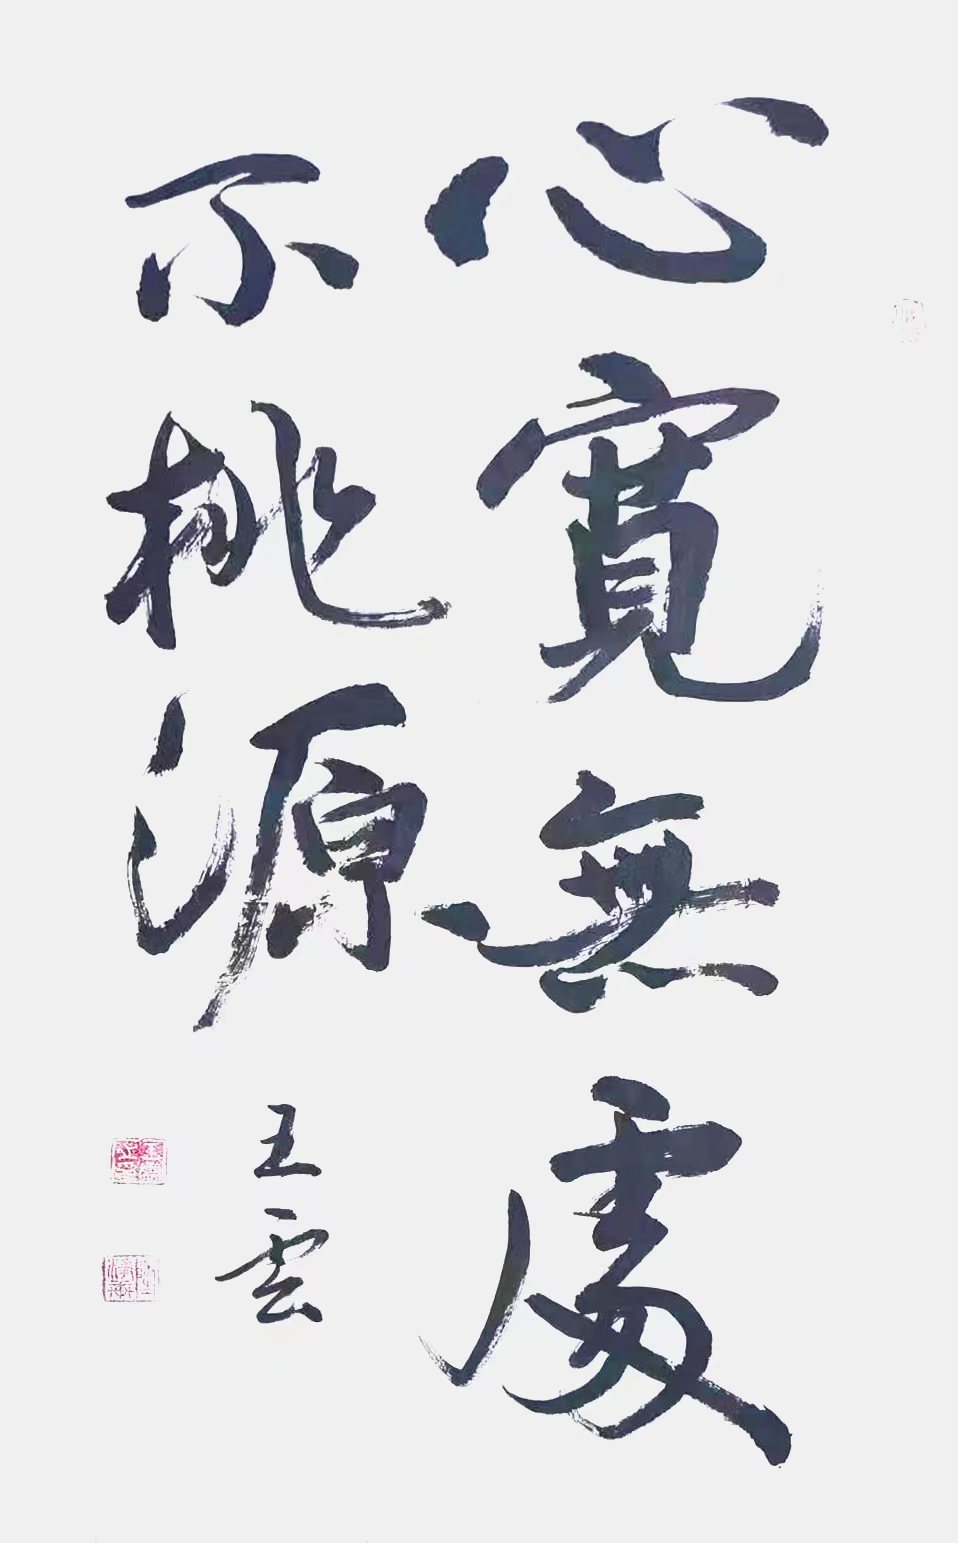 心寬無處
不桃源
王雲